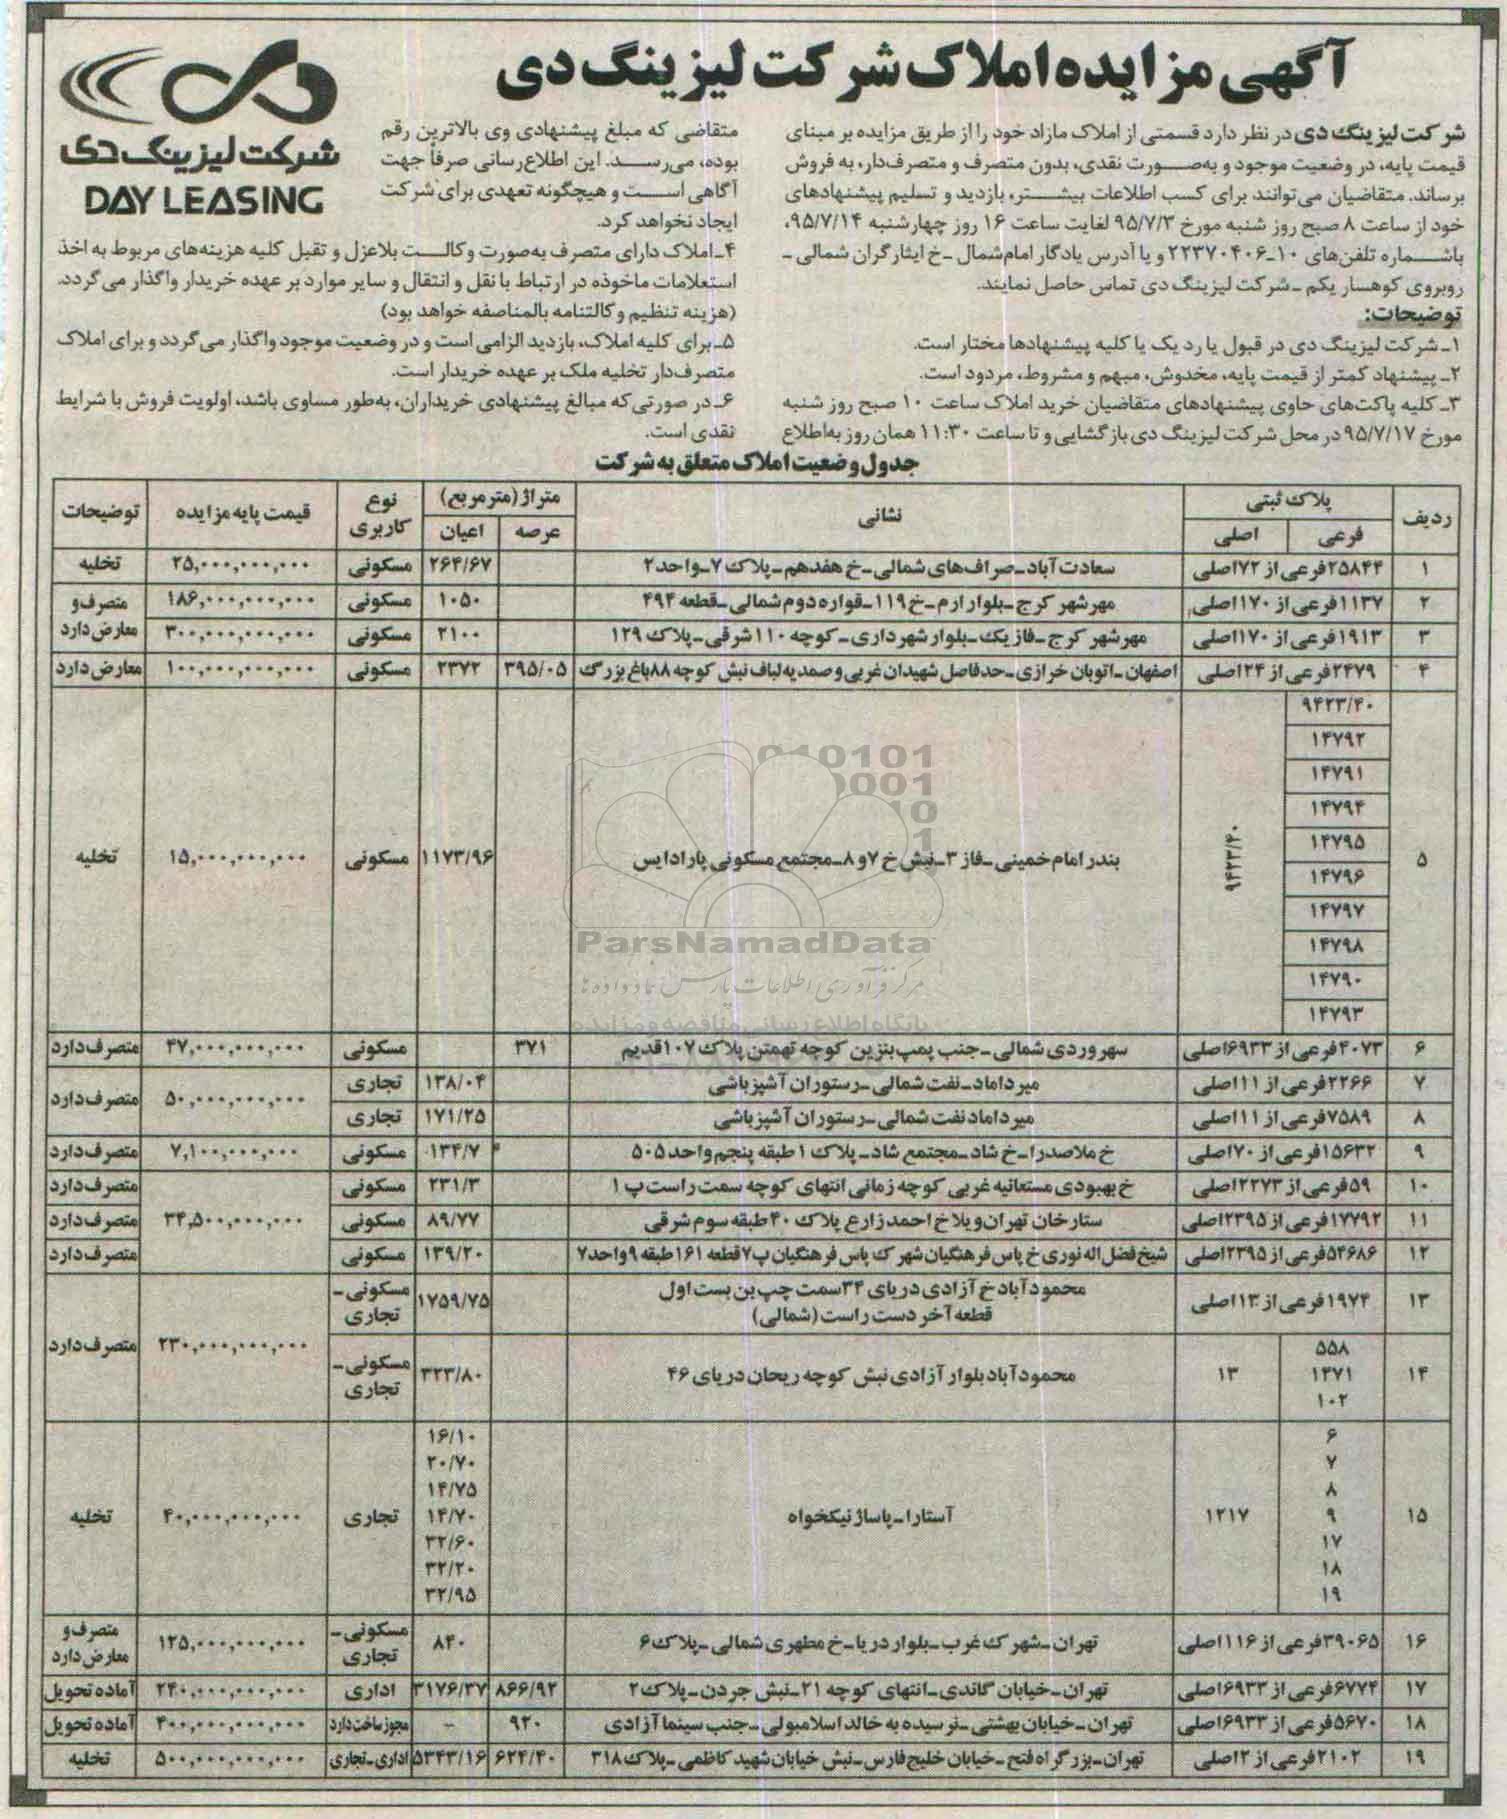 آگهی مزایده املاک شرکت لیزینگ دی
شرکت لیزینگ دی
DAY LEASING
شرکت لیزینگ دی در نظر دارد قسمتی از املاک مازاد خود را از طریق مزایده بر مبنای
قیمت پایه، در وضعیت موجود و به‌صورت نقدی، بدون متصرف و متصرف‌دار، به فروش
برساند. متقاضیان می‌توانند، برای کسب اطلاعات بیشتر، بازدید و تسلیم پیشنهادهای
خود از ساعت ۸ صبح روز شنبه مورخ ۹۵/۷/۳ لغایت ساعت ۱۶ روز چهارشنبه ۹۵/۷/۱۴،
باشماره تلفن‌های ۱۰-۲۲۳۷۰۴۰۶ و یا آدرس یادگار امام‌شمال -خ ایثارگران شمالی -
روبروی کوهسار یکم -شرکت لیزینگ دی تماس حاصل نمایند.
توضیحات:
۱-شرکت لیزینگ دی در قبول یا رد یک یا کلیه پیشنهادها مختار است.
۲- پیشنهاد کمتر از قیمت پایه، مخدوش، مبهم و مشروط، مردود است.
۳-کلیه پاکت‌های حاوی پیشنهادهای متقاضیان خرید املاک ساعت ۱۰ صبح روز شنبه
مورخ ۹۵/۷/۱۷ در محل شرکت لیزینگ دی بازگشایی و تا ساعت ۱۱:۳۰ همان روز به‌اطلاع
متقاضی که مبلغ پیشنهادی وی بالاترین رقم
بوده، می‌رسد. این اطلاع‌رسانی صرفاً جهت
آگاهی است و هیچگونه تعهدی برای شرکت
ایجاد نخواهد کرد.
۴-املاک دارای متصرف به‌صورت وکالت بلاعزل و تقبل کلیه هزینه‌های مربوط به اخذ
استعلامات ماخوذه در ارتباط با نقل و انتقال و سایر موارد بر عهده خریدار واگذار می‌گردد.
(هزینه تنظیم وکالتنامه بالمناصفه خواهد بود)
۵-برای کلیه املاک، بازدید الزامی است و در وضعیت موجود واگذار می‌گردد و برای املاک
متصرف‌دار تخلیه ملک بر عهده خریدار است.
۶-در صورتی‌که مبالغ پیشنهادی خریداران، به‌طور مساوی باشد، اولویت فروش با شرایط
نقدی است.
جدول وضعیت املاک متعلق به شرکت
ردیف پلاک ثبتی نشانی متراژ (مترمربع) نوع کاربری قیمت پایه مزایده توضیحات
فرعی اصلی عرصه اعیان
۱ ۲۵۸۴۴فرعی از ۷۲اصلی سعادت آباد-صراف‌های شمالی-خ هفدهم-پلاک ۷-واحد ۲ ۲۶۴/۶۷ مسکونی ۲۵,۰۰۰,۰۰۰,۰۰۰ تخلیه
۲ ۱۱۳۷فرعی از ۱۷۰اصلی مهرشهر کرج-بلوار ارم-خ ۱۱۹-قواره دوم شمالی-قطعه ۴۹۴ ۱۰۵۰ مسکونی ۱۸۶,۰۰۰,۰۰۰,۰۰۰ متصرف و معارض دارد
۳ ۱۹۱۳فرعی از ۱۷۰اصلی مهرشهر کرج-فاز یک-بلوار شهرداری-کوچه ۱۱۰شرقی-پلاک ۱۲۹ ۲۱۰۰ مسکونی ۳۰۰,۰۰۰,۰۰۰,۰۰۰
۴ ۲۴۷۹فرعی از ۲۴اصلی اصفهان-اتوبان خرازی-حدفاصل شهیدان غربی و صمدیه لباف نبش کوچه ۸۸باغ بزرگ ۳۹۵/۰۵ ۲۳۷۲ مسکونی ۱۰۰,۰۰۰,۰۰۰,۰۰۰ معارض دارد
۹۴۲۳/۴۰
۱۴۷۹۲
۱۴۷۹۱
۱۴۷۹۴
۱۴۷۹۵
۵ ۱۴۷۹۶ ۹۴۲۳/۴۰ بندر امام خمینی-فاز ۳-نبش خ ۷و ۸-مجتمع مسکونی پارادایس ۱۱۷۳/۹۶ مسکونی ۱۵,۰۰۰,۰۰۰,۰۰۰ تخلیه
۱۴۷۹۷
۱۴۷۹۸
۱۴۷۹۰
۱۴۷۹۳
۶ ۴۰۷۳فرعی از ۶۹۳۳اصلی سهروردی شمالی-جنب پمپ‌بنزین کوچه تهمتن پلاک ۱۰۷قدیم ۳۷۱ مسکونی ۴۷,۰۰۰,۰۰۰,۰۰۰ متصرف دارد
۷ ۲۲۶۶فرعی از ۱۱اصلی میرداماد-نفت شمالی-رستوران آشپزباشی ۱۳۸/۰۴ تجاری ۵۰,۰۰۰,۰۰۰,۰۰۰ متصرف دارد
۸ ۷۵۸۹فرعی از ۱۱اصلی میرداماد نفت شمالی-رستوران آشپزباشی ۱۷۱/۲۵ تجاری
۹ ۱۵۶۳۲فرعی از ۷۰اصلی خ ملاصدرا-خ شاد-مجتمع شاد-پلاک ۱طبقه پنجم واحد ۵۰۵ ۱۳۴/۷ مسکونی ۷,۱۰۰,۰۰۰,۰۰۰ متصرف دارد
۱۰ ۵۹فرعی از ۲۲۷۳اصلی خ بهبودی مستعانیه غربی کوچه زمانی انتهای کوچه سمت راست پ ۱ ۲۳۱/۳ مسکونی متصرف دارد
۱۱ ۱۷۷۹۲فرعی از ۲۳۹۵اصلی ستارخان تهران‌ویلا خ احمد زارع پلاک ۴۰طبقه سوم شرقی ۸۹/۷۷ مسکونی ۳۴,۵۰۰,۰۰۰,۰۰۰ متصرف دارد
۱۲ ۵۴۶۸۶فرعی از ۲۳۹۵اصلی شیخ فضل‌اله نوری خ یاس فرهنگیان شهرک یاس فرهنگیان پ ۷قطعه ۱۶۱طبقه ۹واحد ۷ ۱۳۹/۲۰ مسکونی متصرف دارد
۱۳ ۱۹۷۴فرعی از ۱۳اصلی محمودآباد خ آزادی دریای ۳۴سمت چپ بن بست اول
قطعه آخر دست راست (شمالی) ۱۷۵۹/۷۵ مسکونی-تجاری ۲۳۰,۰۰۰,۰۰۰,۰۰۰ متصرف دارد
۵۵۸
۱۴ ۱۴۷۱ ۱۳ محمودآباد بلوار آزادی نبش کوچه ریحان دریای ۴۶ ۳۲۳/۸۰ مسکونی-تجاری
۱۰۲
۶ ۱۶/۱۰
۷ ۲۰/۷۰
۸ ۱۴/۷۵
۱۵ ۹ ۱۲۱۷ آستارا-پاساژ نیکخواه ۱۴/۷۰ تجاری ۴۰,۰۰۰,۰۰۰,۰۰۰ تخلیه
۱۷ ۳۲/۶۰
۱۸ ۳۲/۲۰
۱۹ ۳۲/۹۵
۱۶ ۳۹۰۶۵فرعی از ۱۱۶اصلی تهران-شهرک غرب-بلوار دریا-خ مطهری شمالی-پلاک ۶ ۸۴۰ مسکونی-تجاری ۱۲۵,۰۰۰,۰۰۰,۰۰۰ متصرف و معارض دارد
۱۷ ۶۷۷۴فرعی از ۶۹۳۳اصلی تهران-خیابان گاندی-انتهای کوچه ۲۱-نبش جردن-پلاک ۲ ۸۶۶/۹۲ ۳۱۷۶/۳۷ اداری ۲۴۰,۰۰۰,۰۰۰,۰۰۰ آماده تحویل
۱۸ ۵۶۷۰فرعی از ۶۹۳۳اصلی تهران-خیابان بهشتی-نرسیده به خالد اسلامبولی-جنب سینما آزادی ۹۲۰ - مجوز ساخت دارد ۴۰۰,۰۰۰,۰۰۰,۰۰۰ آماده تحویل
۱۹ ۲۱۰۲فرعی از ۲اصلی تهران-بزرگراه فتح-خیابان خلیج فارس-نبش خیابان شهید کاظمی-پلاک ۳۱۸ ۶۲۴/۴۰ ۵۳۴۳/۱۶ اداری-تجاری ۵۰۰,۰۰۰,۰۰۰,۰۰۰ تخلیه
ParsNamadData
مرکز فرآوری اطلاعات پارس نماد داده‌ها
پایگاه اطلاع رسانی مناقصه و مزایده